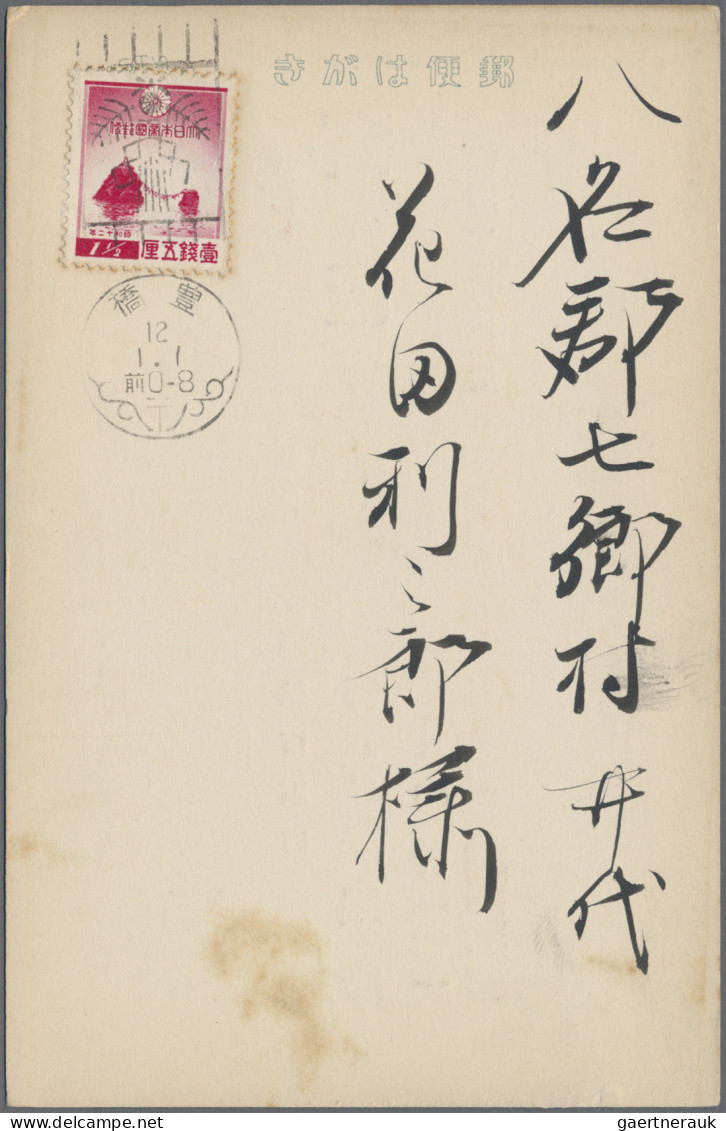 郵便はがき
八名郡七郷村井代
花田利之郎様
大日本帝國郵便
昭和十二年
1½ 壹錢五厘
豊橋
12
1.1
前0-8
gaertnerauk